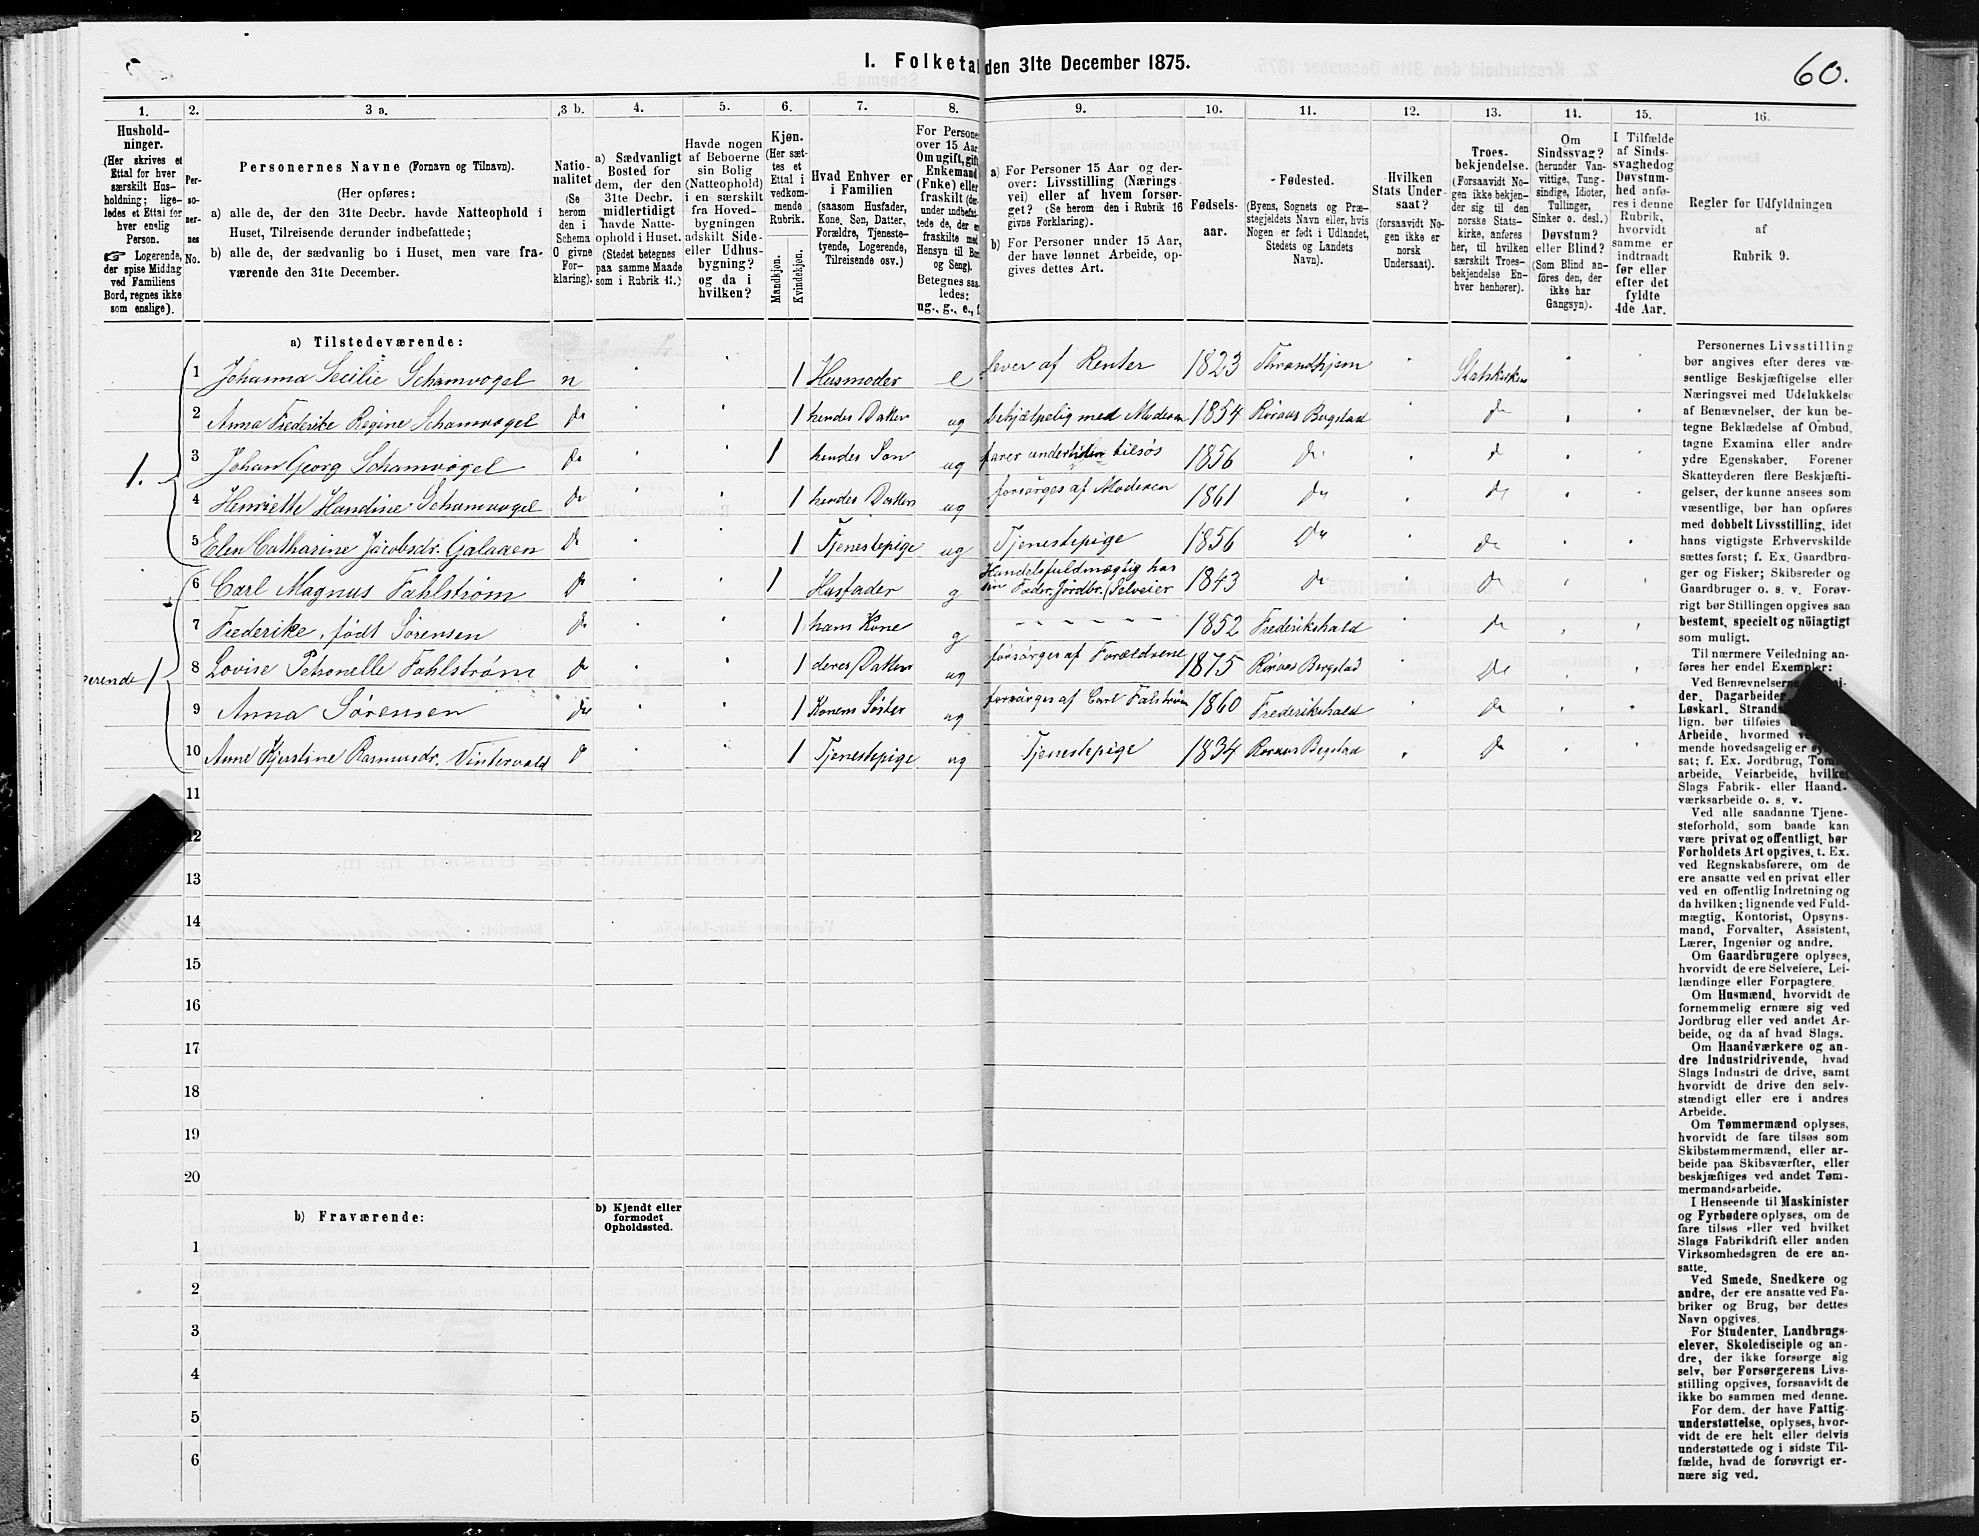 1. Folketal den 31te December 1875.
60.
1.
2.
3 a.
3 b.
4.
5.
6.
7.
8.
9.
10.
11.
12.
13.
14.
15.
16.
Hushold-
ninger.
(Her skrives et
Ettal for hver
særskilt Hus-
holdning; lige-
ledes et Ettal for
hver enslig
Person.
☞ Logerende,
der spise Middag
ved Familiens
Bord, regnes ikke
som enslige).
Per-
so-
ner-
nes
No.
Personernes Navne (Fornavn og Tilnavn).
(Her opføres:
a) alle de, der den 31te Decbr. havde Natteophold i
Huset, Tilreisende derunder indbefattede;
b) alle de, der sædvanlig bo i Huset, men vare fra-
værende den 31te December.
Natio-
nalitet
(Se
herom
den i
Schema
O givne
For-
klaring).
a) Sædvanligt
Bosted for
dem, der den
31te Decbr.
midlertidigt
havde Natte-
ophold i Huset.
(Stedet betegnes
paa samme Maade
som i Rubrik 11.)
Havde nogen
af Beboerne
sin Bolig
(Natteophold)
i en særskilt
fra Hoved-
bygningen
adskilt Side-
eller Udhus-
bygning?
og da i
hvilken?
Kjøn.
(Her sæt-
tes et
Ettal i
vedkom-
mende
Rubrik.
Mandkjøn.
Kvindekjøn.
Hvad Enhver er
i Familien
(saasom Husfader,
Kone, Søn, Datter,
Forældre, Tjeneste-
tyende, Logerende,
Tilreisende osv.)
For Persone
over 15 Aar
Om ugift, gift
Enkemand
(Enke) eller
fraskilt (der-
under indbefat-
tede de, der e
fraskilte med
Hensyn til Bor
og Seng).
Betegnes saa-
ledes:
ug., g., e., f
a) For Personer 15 Aar og der-
over: Livsstilling (Nærings-
vei) eller af hvem forsør-
get? (Se herom den i Rubrik 16
givne Forklaring).
b) For Personer under 15 Aar,
der have lønnet Arbeide, op-
gives dettes Art.
Fødsels-
aar.
Fødested.
(Byens, Sognets og Præ-
stegjeldets Navn eller, hvis
Nogen er født i Udlandet,
Stedets og Landets
Navn).
Hvilken
Stats Under-
saat?
(forsaavidt No-
gen ikke er
norsk
Undersaat).
Troes-
bekjendelse.
(Forsaavidt No-
gen ikke bekjen-
der sig til den
norske Stats-
kirke, anføres
her, til hvilken
særskilt Troes-
bekjendelse En-
hver henhører).
Om
Sindssvag?
(herunder Van-
vittige, Tung-
sindige, Idioter,
Tullinger,
Sinker o. desl.)
Døvstum?
eller Blind?
(Som Blind an-
føres den, der
ikke har
Gangsyn).
I Tilfælde
af Sinds-
svaghed og
Døvstum-
hed anfø-
res i denne
Rubrik,
hvorvidt
samme er
indtraadt
før eller
efter det
fyldte
4de Aar.
Regler for Udfyldningen
af
Rubrik 9.
a) Tilstedeværende:
1.
1 Johanna Secilie Schamvogel n 1 Husmoder e lever af Renter 1823 Throndhjem Statskirken
2 Anna Frederike Regine Schamvogel do 1 hendes Datter ug behjælpelig med Moderen 1854 Røraas Bergstad do
3 Johan Georg Schamvogel do 1 hendes Søn ug farer undertiden tilsøs 1856 do do
4 Henriette Handine Schamvogel do 1 hendes Datter ug forsørges af Moderen 1861 do do
5 Elen Catharine Jacobsdr. Galaaen do 1 Tjenestepige ug Tjenestepige 1856 do do
6 Carl Magnus Fahlstrøm do 1 Husfader g Handelsfuldmægtig hos
sin Fader, Jordbr. Selveier 1843 do do
7 Frederike, født Sørensen do 1 hans Kone g - - - - - 1852 Frederikshald do
erende 1
8 Lovise Petronelle Fahlstrøm do 1 deres Datter ug forsørges af Forældrene 1875 Røraas Bergstad do
9 Anna Sørensen do 1 Konens Søster ug forsørges af Carl Falstrøm 1860 Frederikshald do
10 Anne Kjerstine Rasmusdr. Vintervold do 1 Tjenestepige ug Tjenestepige 1834 Røraas Bergstad do
11
12
13
14
15
16
17
18
19
20
b) Fraværende:
b) Kjendt eller
formodet
Opholdssted.
1
2
3
4
5
6
Personernes Livsstilling
bør angives efter deres væ-
sentlige Beskjæftigelse eller
Næringsvei med Udelukkelse
af Benævnelser, der kun be-
tegne Beklædelse af Ombud,
tagne Examina eller andre
ydre Egenskaber. Forener
Skatteyderen flere Beskjæfti-
gelser, der kunne ansees som
væsentlige, bør han opføres
med dobbelt Livsstilling, idet
hans vigtigste Erhvervskilde
sættes først; f. Ex. Gaardbru-
ger og Fisker; Skibsreder og
Gaardbruger o. s. v. Forøv-
rigt bør Stillingen opgives saa
bestemt, specielt og nöiagtigt
som muligt.
Til nærmere Veiledning an-
føres her endel Exempler:
Ved Benævnelserne
der, Dagarbeider,
Løskarl, Strands
lign. bør tilføies
Arbeide, hvormed
mende hovedsagelig er
sat; f. Ex. Jordbrug, Tom
arbeide, Veiarbeide, hvilket
Slags Fabrik- eller Haand-
værksarbeide o. s. v.
Ved alle saadanne Tjene-
steforhold, som baade kan
være privat og offentligt, bør
Forholdets Art opgives, t. Ex.
ved Regnskabsførere, om de
ere ansatte ved en privat eller
ved en offentlig Indretning og
da hvilken; lignende ved Fuld-
mægtig, Kontorist, Opsyns-
mand, Forvalter, Assistent,
Lærer, Ingeniør og andre.
Om Gaardbrugere oplyses,
hvorvidt de ere Selveiere, Lei-
lændinge eller Forpagtere.
Om Husmænd, hvorvidt de
fornemmelig ernære sig ved
Jordbrug eller ved andet Ar-
beide, og da af hvad Slags.
Om Haandværkere og an-
dre Industridrivende, hvad
Slags Industri de drive, samt
hvorvidt de drive den selv-
stændigt eller ere i andres
Arbeide.
Om Tømmermænd oplyses,
hvorvidt de fare tilsøs som
Skibstømmermænd, eller ar-
beide paa Skibsværfter, eller
beskjæftiges ved andet Tøm-
mermandsarbeide.
I Henseende til Maskinister
og Fyrbødere oplyses, om de
fare tilsøs eller ved hvilket
Slags Fabrikdrift eller anden
Virksomhedsgren de ere an-
satte.
Ved Smede, Snedkere og
andre, der ere ansatte ved Fa-
briker og Brug, bør dettes
Navn opgives.
For Studenter, Landbrugs-
elever, Skoledisciple og an-
dre, der ikke forsørge sig
selv, bør Forsørgerens Livs-
stilling opgives, forsaavidt de
ikke bo sammen med denne.
For dem, der have Fattig-
understøttelse, oplyses, hvor-
vidt de ere helt eller delvis
understøttede og i sidste Til-
fælde, hvad de forøvrigt er-
nære sig ved.